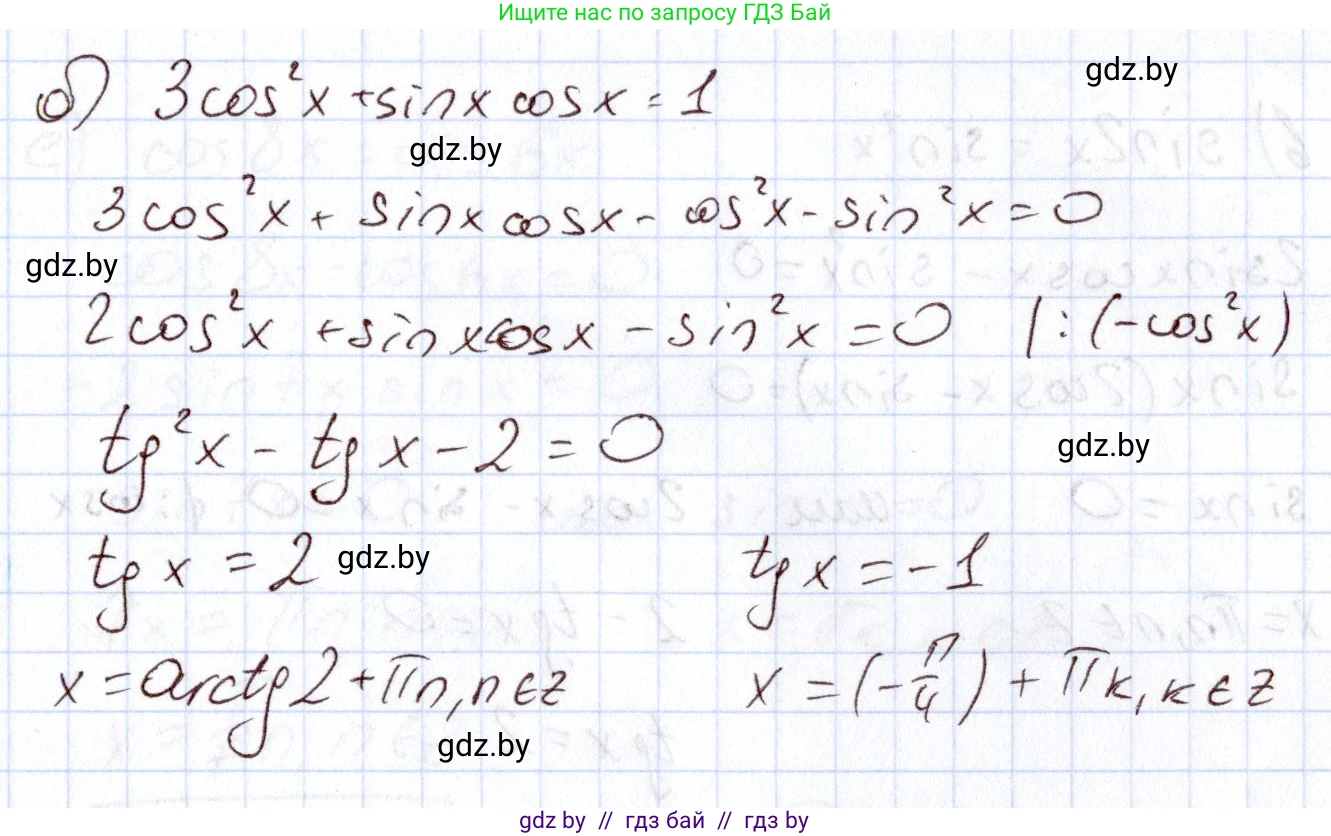 Ищите нас по запросу ГДЗ Бай
б) 3cos²x + sinx cosx = 1
gdz.by
gdz.by
3cos²x + sinx cosx - cos²x - sin²x = 0
gdz.by
2cos²x + sinx cosx - sin²x = 0 | : (-cos²x)
tg²x - tg x - 2 = 0
gdz.by
tg x = 2 gdz.by tg x = -1
x = arctg2 + πn, n∈z x = (-π/4) + πk, k∈z
gdz.by
gdz by // гдз бай // гдз by